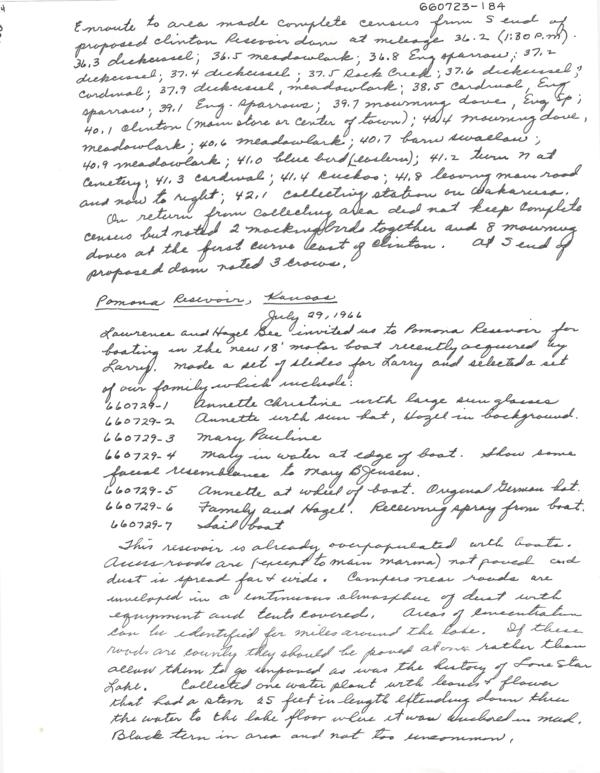 660723-184
Enroute to area made complete census from S end of
proposed Clinton Resevoir dam at mileage 36.2 (1:30 P.M).
36.3 dickcissel; 36.5 meadowlark; 36.8 Eng sparrow; 37.2
dickcissel; 37.4 dickcissel; 37.5 Rock Creek; 37.6 dickcissel,
Cardinal; 37.9 dickcissel, meadowlark; 38.5 cardinal, Eng
sparrow; 39.1 Eng. Sparrows; 39.7 mourning dove, Eng Sp;
40.1 Clinton (main store or center of town); 40.4 mourning dove,
meadowlark; 40.6 meadowlark; 40.7 barn swallow;
40.9 meadowlark; 41.0 blue bird (eastern); 41.2 turn N at
Cemetery; 41.3 cardinal; 41.4 Cuckoo; 41.8 leaving main road
and now to right; 42.1 collecting station on Wakarusa.
On return from collecting area did not keep complete
census but noted 2 mockingbirds together and 8 mourning
doves at the first curve east of Clinton. At S end of
proposed dam noted 3 crows.
Pomona Resevoir, Kansas
July 29, 1966
Lawrence and Hazel Gee invited us to Pomona Resevoir for
boating in the new 18' motor boat recently acquired by
Larry. Made a set of slides for Larry and selected a set
of our family which include:
660729-1 Annette Christine with large sun glasses
660729-2 Annette with sun hat, Hazel in background.
660729-3 Mary Pauline
660729-4 Mary in water at edge of boat. Show some
facial resemblance to Mary B Jensen.
660729-5 Annette at wheel of boat. Original German hat.
660729-6 Family and Hazel. Receiving spray from boat.
660729-7 Sail boat
This resevoir is already overpopulated with boats.
Access roads are (except to main marina) not paved and
dust is spread far & wide. Campers near roads are
enveloped in a continuous atmosphere of dust with
equipment and tents covered. Areas of concentration
can be identified for miles around the lake. If these
roads are county they should be paved at once rather than
allow them to go unpaved as was the history of Lone Star
Lake. Collected one water plant with leaves & flower
that had a stem 25 feet in length extending down thru
the water to the lake floor where it was anchored in mud.
Black tern in area and not too uncommon.